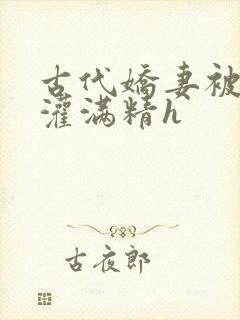 古代娇妻被
灌满精h
古夜郎